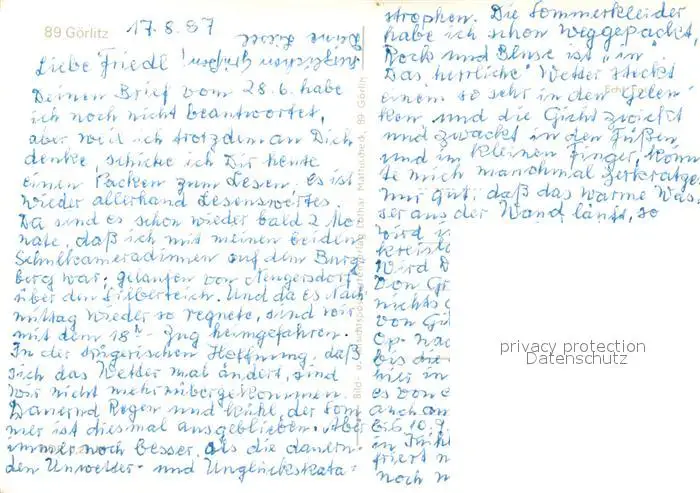 89 Görlitz 17.8.87
Deine Liesel
Liebe Friedl!
Deinen Brief vom 28.6. habe
ich noch nicht beantwortet,
aber weil ich trotzdem an Dich
denke, schicke ich Dir heute
einen Packen zum Lesen. Es ist
wieder allerhand Lesenswertes.
Da sind es schon wieder bald 2 Mo-
nate, daß ich mit meinen beiden
Schulkameradinnen auf dem Burg
berg war; gelaufen von Neugersdorf
über den Silberteich. Und da es Nach
mittag wieder so regnete, sind wir
mit dem 18h- Zug heimgefahren.
In der trügerischen Hoffnung, daß
sich das Wetter mal ändert, sind
wir nicht mehr rübergekommen.
Dauernd Regen und kühl, der Som
mer ist diesmal ausgeblieben. Aber
immer noch besser, als die dauern-
den Unwetter- und Unglückskata-
strophen. Die Sommerkleider
habe ich schon weggepackt,
Rock und Bluse ist "in".
Das herrliche Wetter steckt
einem so sehr in den Gelen-
ken und die Gicht zwickt
und zwackt in den Füßen
und im kleinen Finger, könn
te mich manchmal zerkratzen
nur gut, daß das warme Was-
ser aus der Wand läuft, so
wird
Wird
Von
nichts
von
Op.
bis die
hier in
es von
auch an
bis 10.9.
in
friert
noch
privacy protection
Datenschutz